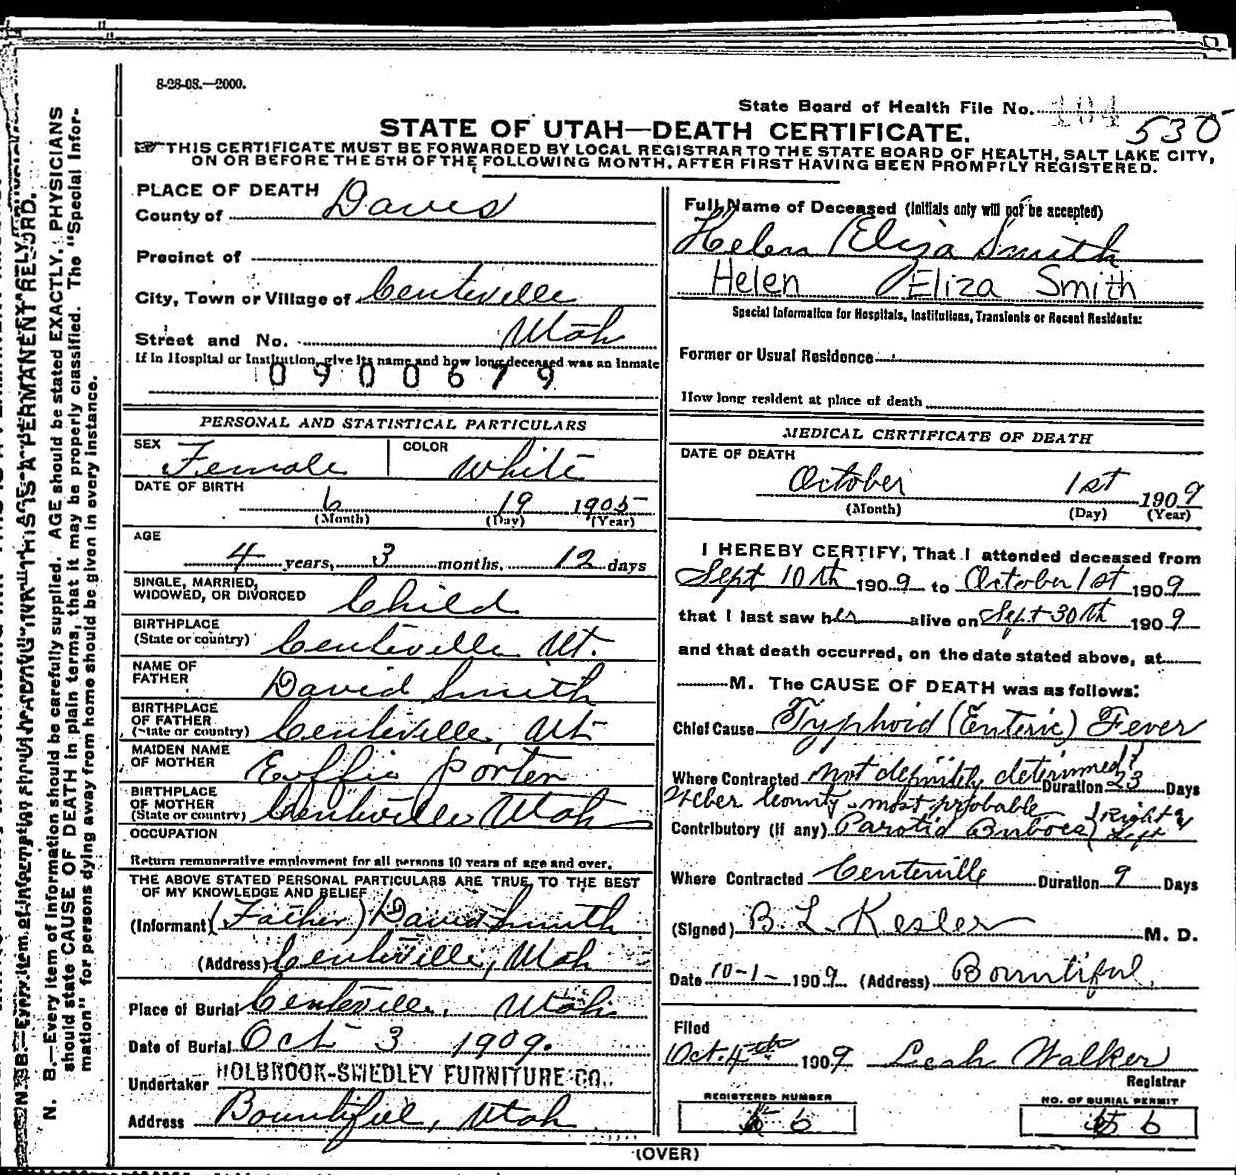 8-28-08.—2000.
State Board of Health File No. 104
530
STATE OF UTAH—DEATH CERTIFICATE.
THIS CERTIFICATE MUST BE FORWARDED BY LOCAL REGISTRAR TO THE STATE BOARD OF HEALTH, SALT LAKE CITY,
ON OR BEFORE THE 5TH OF THE FOLLOWING MONTH, AFTER FIRST HAVING BEEN PROMPTLY REGISTERED.
PLACE OF DEATH
County of Davis
Precinct of
City, Town or Village of Centerville
Street and No. Utah
If in Hospital or Institution, give its name and how long deceased was an inmate
0900679
PERSONAL AND STATISTICAL PARTICULARS
SEX Female COLOR White
DATE OF BIRTH
6 19 1905
(Month) (Day) (Year)
AGE
4 years, 3 months, 12 days
SINGLE, MARRIED,
WIDOWED, OR DIVORCED Child
BIRTHPLACE
(State or country) Centerville Ut.
NAME OF
FATHER David Smith
BIRTHPLACE
OF FATHER
(State or country) Centerville, Ut
MAIDEN NAME
OF MOTHER Effie Porter
BIRTHPLACE
OF MOTHER
(State or country) Centerville Utah
OCCUPATION
Return remunerative employment for all persons 10 years of age and over.
THE ABOVE STATED PERSONAL PARTICULARS ARE TRUE TO THE BEST
OF MY KNOWLEDGE AND BELIEF
(Informant) (Father) David Smith
(Address) Centerville, Utah
Place of Burial Centerville, Utah
Date of Burial Oct 3 1909.
Undertaker HOLBROOK-SMEDLEY FURNITURE CO.
Address Bountiful, Utah
Full Name of Deceased (Initials only will not be accepted)
Helen Eliza Smith
Helen Eliza Smith
Special Information for Hospitals, Institutions, Transients or Recent Residents:
Former or Usual Residence
How long resident at place of death
MEDICAL CERTIFICATE OF DEATH
DATE OF DEATH
October 1st 1909
(Month) (Day) (Year)
I HEREBY CERTIFY, That I attended deceased from
Sept 10th 1909 to October 1st 1909
that I last saw her alive on Sept 30th 1909
and that death occurred, on the date stated above, at
M. The CAUSE OF DEATH was as follows:
Chief Cause Typhoid (Enteric) Fever
Where Contracted not definitely determined Duration 23 Days
Weber County most probable
Contributory (if any) Parotid Buboes Right & Left
Where Contracted Centerville Duration 9 Days
(Signed) B. L. Kesler M. D.
Date 10-1-1909 (Address) Bountiful,
Filed
Oct. 4th 1909 Leah Walker
Registrar
REGISTERED NUMBER
6
NO. OF BURIAL PERMIT
6
(OVER)
N. B.—Every item of information should be carefully supplied. AGE should be stated EXACTLY. PHYSICIANS
should state CAUSE OF DEATH in plain terms, that it may be properly classified. The "Special Infor-
mation" for persons dying away from home should be given in every instance.